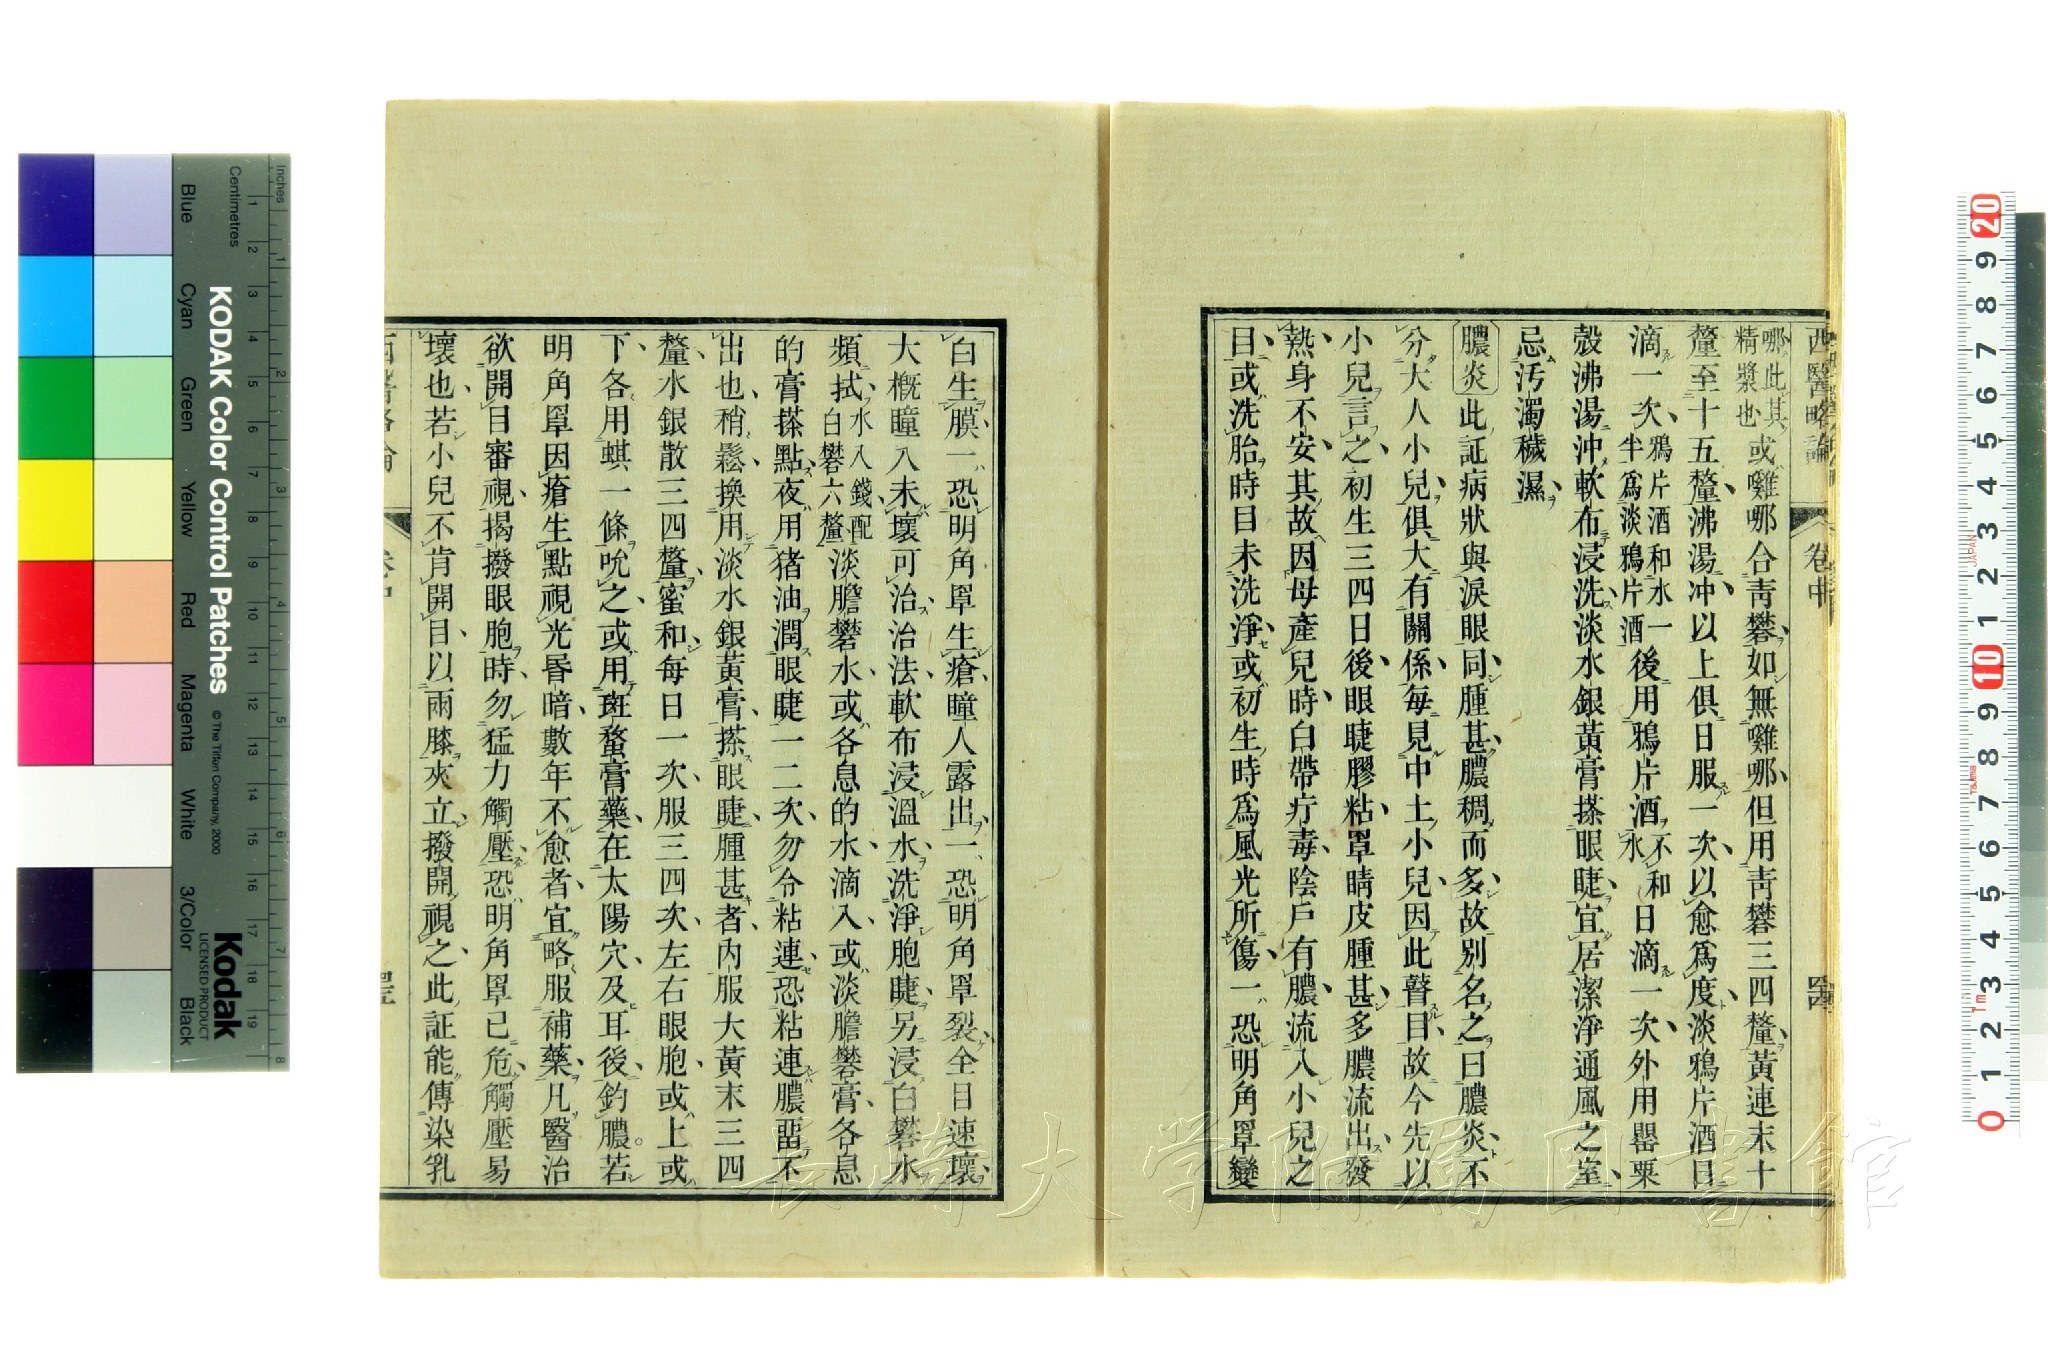 西醫略論
卷中
哪此其
精漿也
或囄哪合靑礬如無囄哪但用靑礬三四釐黃連末十
釐至十五釐沸湯冲以上俱日服一次以愈爲度淡鴉片酒日
滴一次
鴉片酒和水一
半爲淡鴉片酒
後用鴉片酒
不和
水
日滴一次外用罌粟
殼沸湯沖軟布浸洗淡水銀黃膏搽眼睫宜居潔淨通風之室
忌汚濁穢濕
膿炎此証病狀與淚眼同腫甚膿稠而多故别名之曰膿炎不
分大人小兒俱大有關係每見中土小兒因此瞽目故今先以
小兒言之初生三四日後眼睫膠粘罩睛皮腫甚多膿流出發
熱身不安其故因母產兒時白帶疔毒陰戶有膿流入小兒之
目或洗胎時目未洗淨或初生時爲風光所傷一恐明角罩變
白生膜一恐明角罩生瘡瞳人露出一恐明角罩裂全目速壞
大概瞳人未壞可治治法軟布浸溫水洗淨胞睫另浸白礬水
頻拭
水入錢配
白礬六釐
淡膽礬水或各息的水滴入或淡膽礬膏各息
的膏搽點夜用猪油潤眼睫一二次勿令粘連恐粘連膿畱不
出也稍鬆換用淡水銀黃膏搽眼睫腫甚者內服大黃末三四
釐水銀散三四釐蜜和每日一次服三四次左右眼胞或上或
下各用蜞一條吮之或用斑蝥膏藥在太陽穴及耳後釣膿若
明角罩因瘡生點視光昬暗數年不愈者宜略服補藥凡醫治
欲開目審視揭撥眼胞時勿猛力觸壓恐明角罩已危觸壓易
壞也若小兒不肯開目以兩膝夾立撥開視之此証能傳染乳
長崎大学附属図書館
KODAK Color Control Patches
© The Tiffen Company, 2000
Kodak
LICENSED PRODUCT
Inches
Centimetres
Blue
Cyan
Green
Yellow
Red
Magenta
White
3/Color
Black